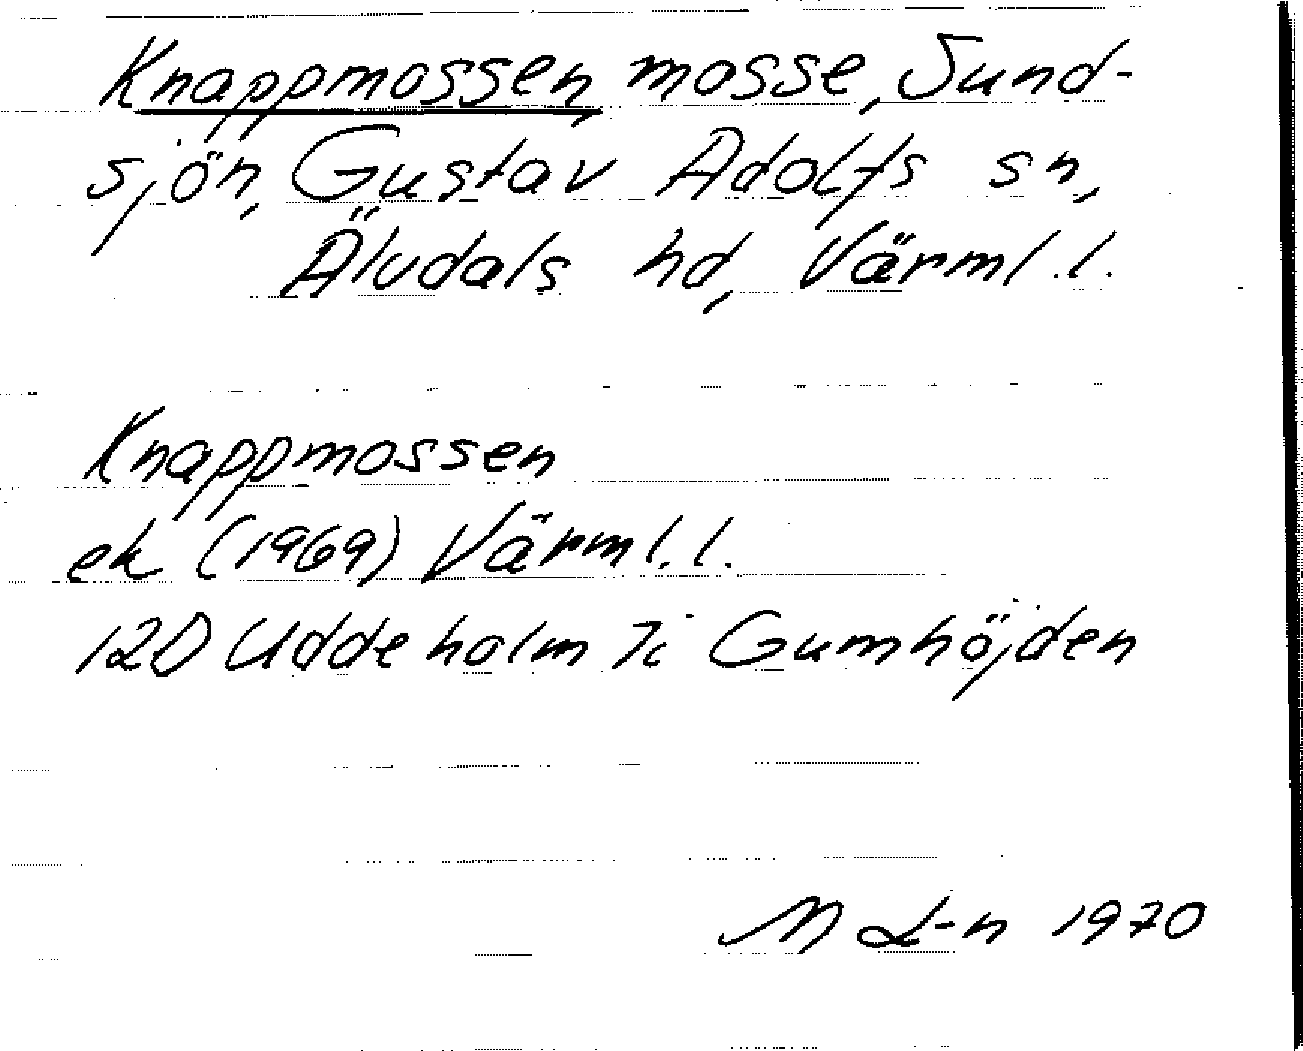 Knappmossen, mosse, Sund-
sjön, Gustav Adolfs sn,
Älvdals hd, Värml.l.
Knappmossen
ek (1969) Värml.l.
12D Uddeholm 7i Gumhöjden
M L-n 1970